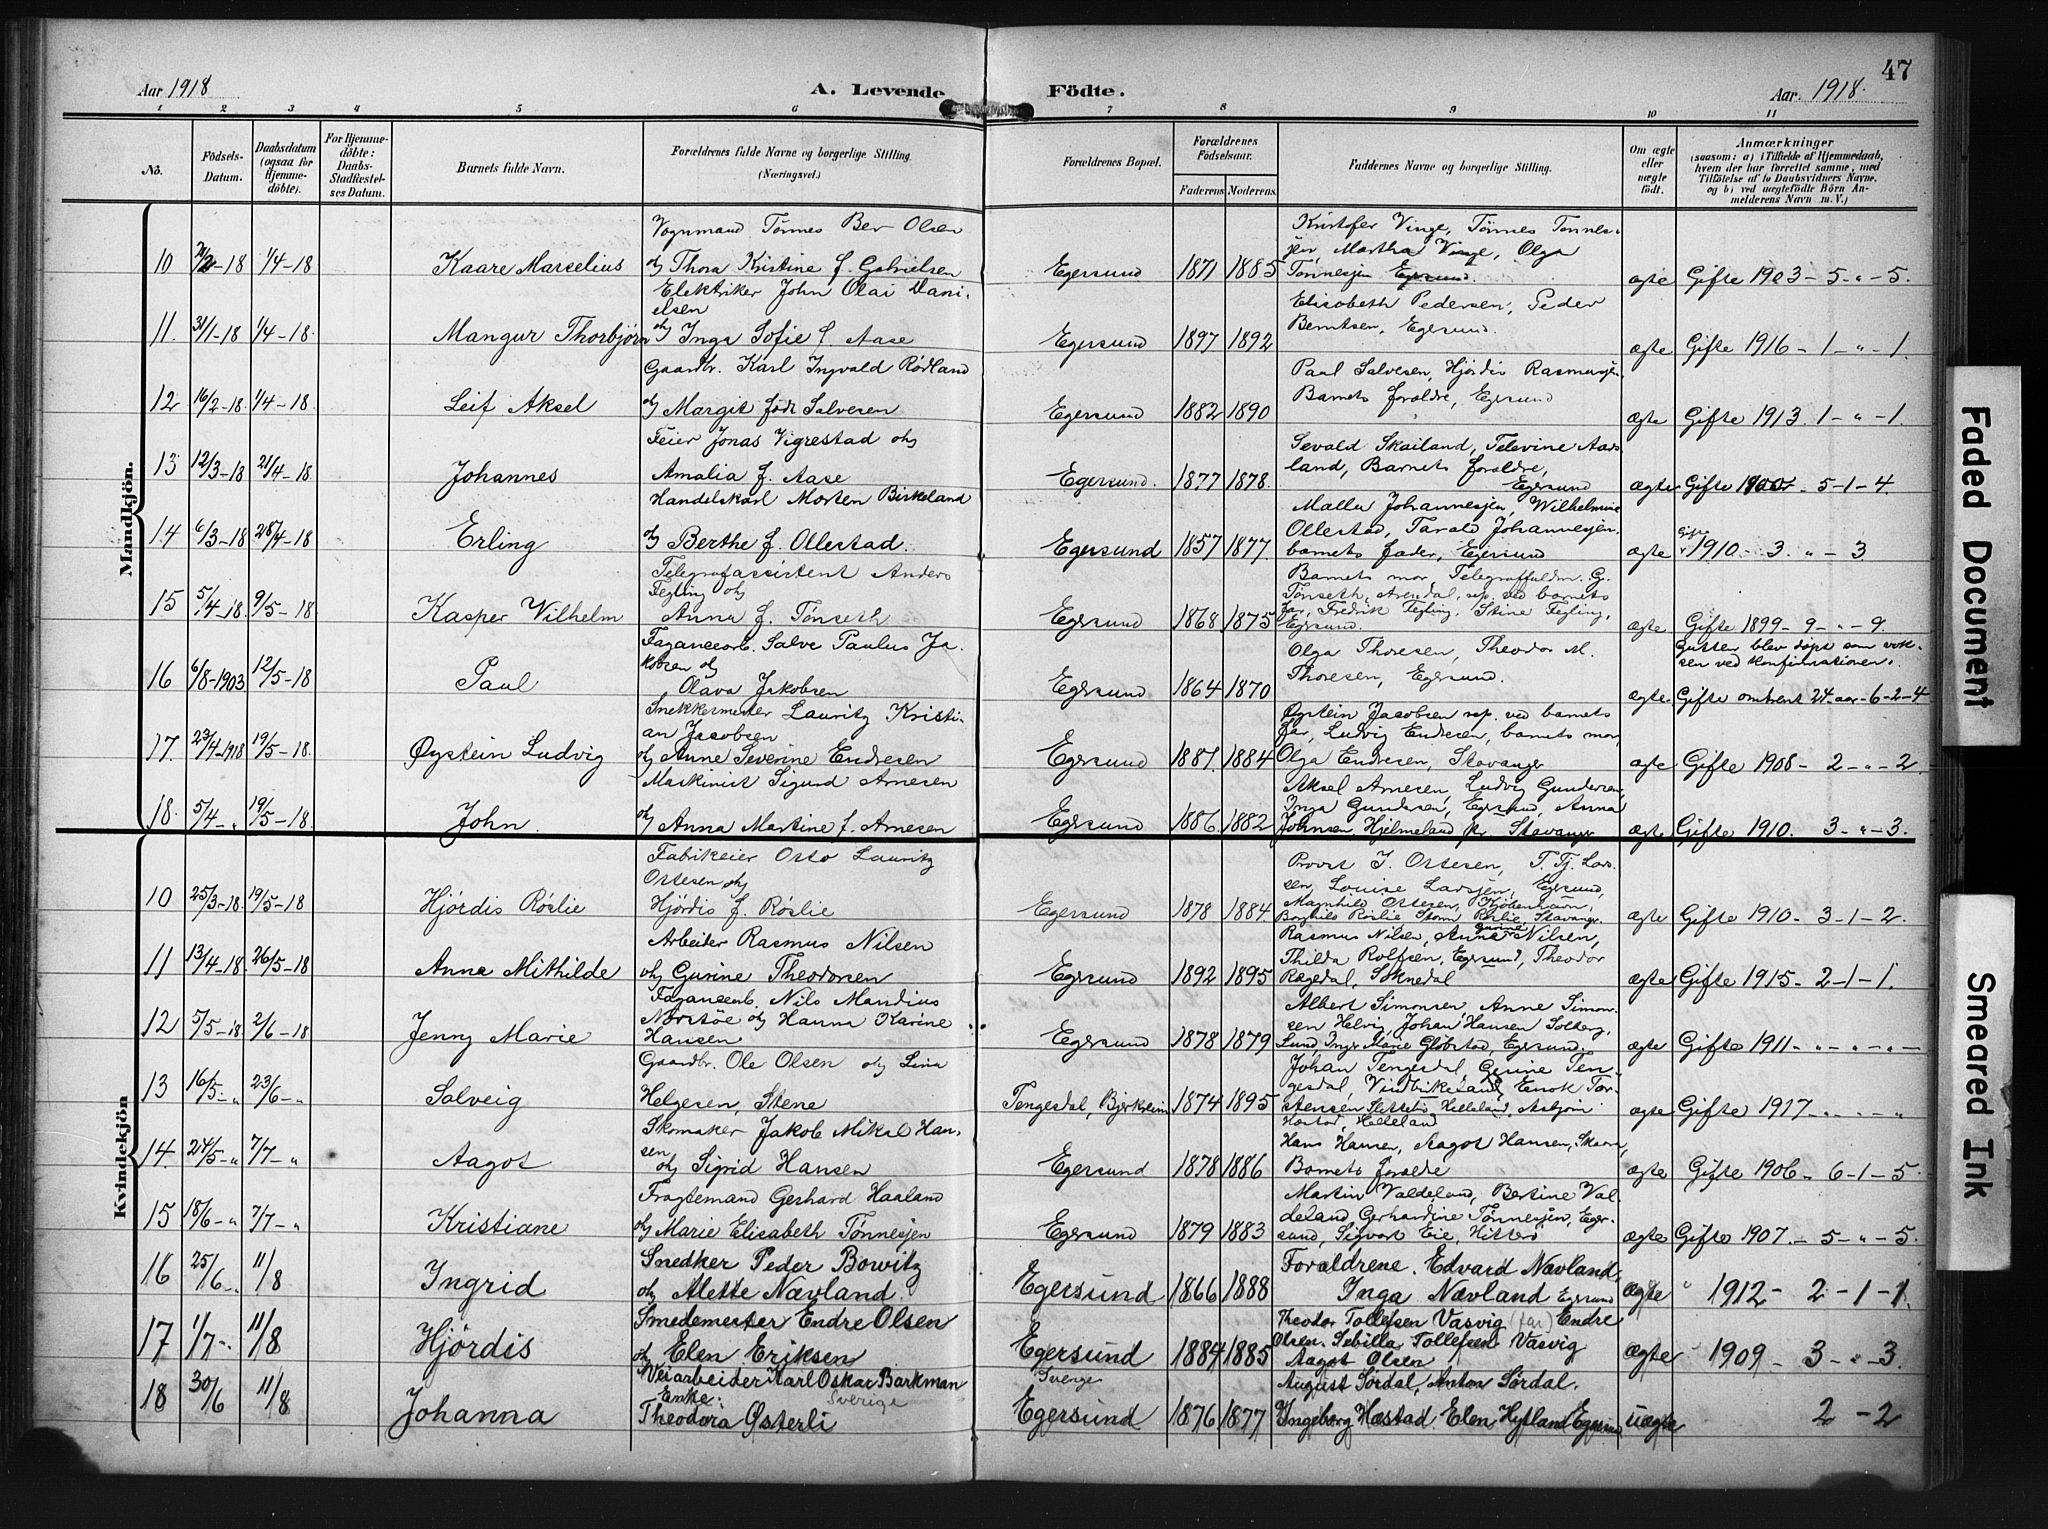 47
Aar 1918
A. Levende Födte.
Aar. 1918.
1 2 3 4 5 6 7 8 9 10 11
No.
Födsels-Datum.
Daabsdatum (ogsaa for Hjemmedöbte).
For Hjemmedöbte: Daabs-Stadfæstelses Datum.
Barnets fulde Navn.
Forældrenes fulde Navne og borgerlige Stilling. (Næringsvei.)
Forældrenes Bopæl.
Forældrenes Födselsaar.
Faderens Moderens
Faddernes Navne og borgerlige Stilling.
Om ægte eller uægte födt.
Anmærkninger
(saasom: a) i Tilfælde af Hjemmedaab, hvem der har forrettet samme, med Tilföielse af to Daabsvidners Navne, og b) ved uægtefödte Börn Anmelderens Navn m. V.)
Mandkjön.
10 1/4-18 Kaare Marselius
Vognmand Tønnes Ber Olsen
og Thora Kristine f. Gabrielsen
Egersund 1871 1885
Kristofer Vinge, Tønnes Tønnes-
sen, Martha Vinge, Olga
Tønnesjen Egersund.
ægte Gifte 1903-5-"-5.
11. 31/1-18 1/4-18. Mangur Thorbjørn
Elektriker John Olai Dani-
elsen
og Inga Sofie f. Aase
Egersund 1897 1892
Elisabeth Pedersen, Peder
Berntsen, Egersund.
ægte Gifte 1916-1-"-1.
12 16/2-18. 1/4-18. Leif Aksel
Gaardbr. Karl Ingvald Rødland
og Margit født Salvesen
Egersund 1882 1890
Paul Salvesen, Hjördis Rasmusjen.
Barnets forældre, Egersund
ægte Gifte 1913. 1-"-1.
13 12/3-18 21/4-18 Johannes
Feier Jonas Vigrestad og
Amalia f. Aase
Egersund. 1877 1878.
Sevald Skailand, Televine Aars-
land, Barnets forældre,
Egersund
ægte Gifte 1900-5-1-4.
14 6/3-18 28/4-18 Erling
Handelskarl Morten Birkeland
og Berthe f. Ollestad.
Egersund 1857 1877.
Malla Johannesjen, Wilhelmine
Ollestad, Tarald Johannesjen.
barnets fader, Egersund
ægte Gifte 1910-3.-"-3
15 5/4-18. 9/5-18 Kasper Wilhelm
Telegrafassistent Anders
Fegling og
Anna f. Tönseth
Egersund 1868 1875
Barnets mor, Telegraffuldm. G.
Tönseth, Arendal, rep. ved barnets
far, Fredrik Fegling, Stine Fegling,
Egersund.
ægte Gifte 1899-9-"-9.
16 6/8-1903 12/5-18 Paul
Fajancearb. Salve Paulus Ja-
kobsen og
Olava Jakobsen
Egersund 1864 1870
Olga Thoresen, Theodor M.
Thoresen, Egersund.
Gutten blev døpt som vok-
sen ved konfirmationen.
ægte Gifte omtrent 24 aar-6-2-4
17. 23/4-1918 19/5-18. Øystein Ludvig
Snekkermester Lauritz Kristi-
an Jacobsen
og Anne Severine Endresen
Egersund 1881. 1884
Øystein Jacobsen rep. ved barnets
far, Ludvig Endresen, barnets mor,
Olga Endresen, Stavanger
ægte Gifte 1908-2-"-2.
18. 5/4-" 19/5-18. John.
Maskinist Sigurd Arnesen
og Anna Martine f. Arnesen
Egersund 1886. 1882
Aksel Arnesen, Ludvig Gundersen,
Inga Gundersen, Egersund, Anna
Johnsen, Hjelmeland pr. Stavanger
ægte Gifte 1910. 3-"-3.
Kvindekjön
10 25/3-18. 19/5-18 Hjördis Röslie
Fabrikeier Otto Lauritz
Ottesen og
Hjördis f. Röslie
Egersund 1878 1884.
Provst J. Ottesen, T. Tj. Lar-
sen, Louise Larsjen, Egersund,
Magnhild Ottesen, Kjöbenhavn,
Borghild Röslie, Röslie, Stavanger.
ægte Gifte 1910-3-1-2.
11 13/4-18. 26/5-18 Anna Mithilde
Arbeider Rasmus Nilsen
og Gurine Theodorsen
Egersund 1892 1895
Rasmus Nilsen, Anna Gurine Nilsen,
Thilda Rolfsen, Egersund, Theodor
Ragedal, Soknedal
ægte Gifte 1915-2-1-1.
12 5/5-18 2/6-18 Jenny Marie
Fajancearb. Nils Mandius
Norstöe og Hanna Karine
Hansen
Egersund 1878 1879
Albert Simonsen, Anne Simon-
sen Helvig, Johan Hansen Solberg,
Lund, Inger Marie Globstad, Egersund.
ægte Gifte 1911-"-"-"-
13 16/5-" 23/6-" Solveig
Gaardbr. Ole Olsen og Lina
Helgesen, Stene
Tengesdal, Bjerkreim 1874 1895
Johan Tengesdal, Gurine Ten-
gesdal, Vindbirkeland, Enok Tor-
stensen Slettebö, Helleland, Asbjörn
Hæstad, Helleland
ægte Gifte 1917-"-"-"
14. 24/5-" 7/7-" Aagot
Skomaker Jakob Mikal Han-
sen
og Sigrid Hansen
Egersund 1878 1886
Hans Hansen, Aagot Hansen, Skaara,
Barnets forældre
ægte Gifte 1906-6-1-5.
15 18/6-" 7/7-" Kristiane
Fragtemand Gerhard Haaland
og Marie Elisabeth Tønnesjen
Egersund 1879 1883
Martin Valdeland, Bertine Val-
deland, Gerhardine Tønnesjen, Eger-
sund, Sigvart Eie, Hitterö
ægte Gifte 1907.-5-"-5.
16 25/6-" 11/8 Ingrid
Snedker Peder Bowitz
og Alette Nævland.
Egersund 1866 1888
Forældrene. Edvard Nævland,
Inga Nævland Egersund
ægte " 1912-2-1-1.
17 1/7-" 11/8 Hjördis
Smedemester Endre Olsen
og Elen Eriksen
Egersund 1884 1885
Theodor Tollefsen Vasvig (far) Endre
Olsen. Sebilla Tollefsen Vasvig
Aagot Olsen
ægte " 1909-3-"-3.
18 30/6 11/8 Johanna
Veiarbeider Karl Oskar Barkman
Enke: Sverige
Theodora Østerli
Sverige
Egersund 1876 1877
August Sördal, Anton Sördal.
Ingeborg Hæstad. Elen Hytland Egersund
uægte 2-2
Faded Document
Smeared Ink